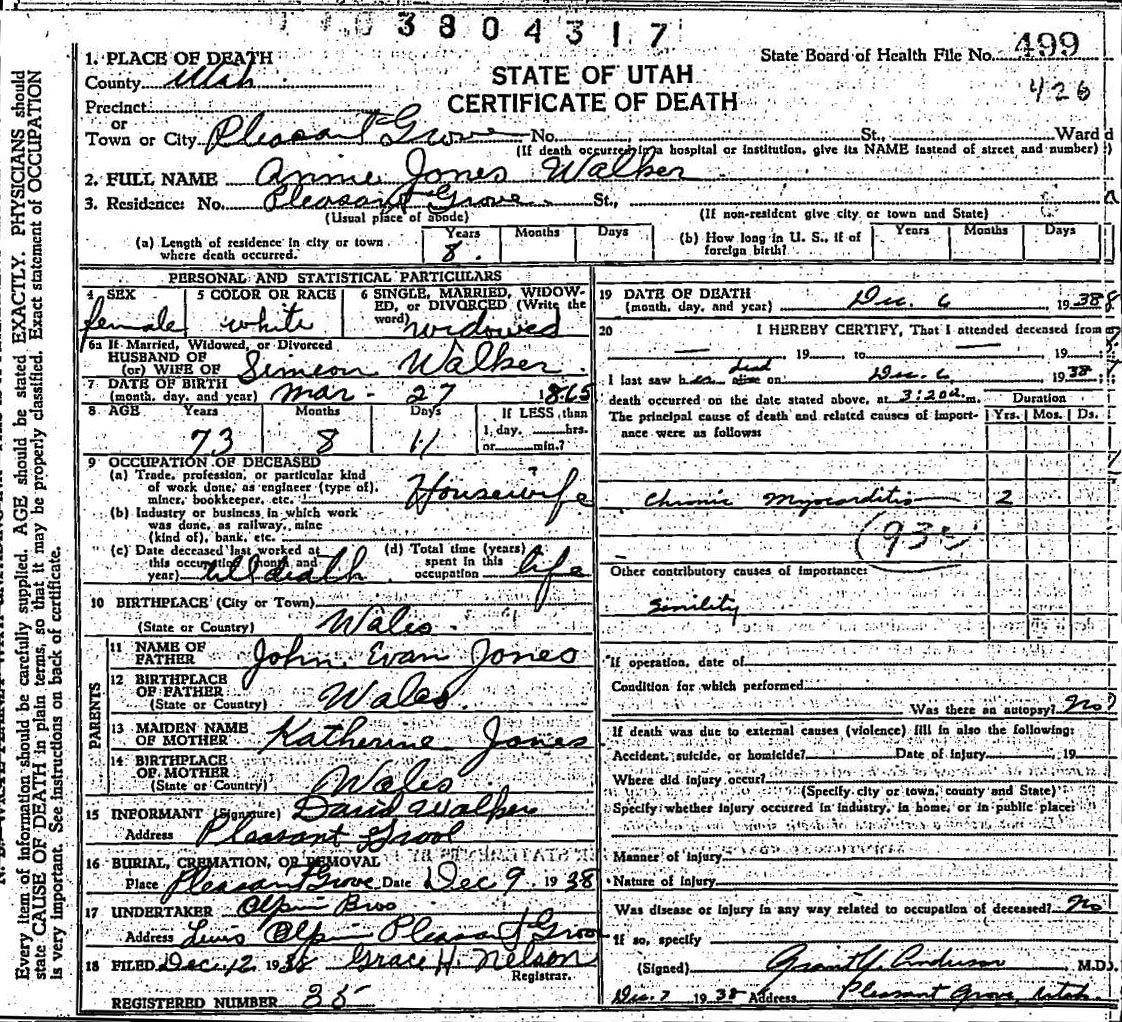 3804317
State Board of Health File No. 499
426
STATE OF UTAH
CERTIFICATE OF DEATH
1. PLACE OF DEATH
County Utah
Precinct
or
Town or City Pleasant Grove No. St., Ward d
(If death occurred in a hospital or institution, give its NAME instead of street and number)
2. FULL NAME Annie Jones Walker
3. Residence: No. Pleasant Grove St.,
(Usual place of abode) (If non-resident give city or town and State)
(a) Length of residence in city or town where death occurred. Years 8 Months Days
(b) How long in U. S., if of foreign birth? Years Months Days
PERSONAL AND STATISTICAL PARTICULARS
4 SEX female
5 COLOR OR RACE white
6 SINGLE, MARRIED, WIDOWED, OR DIVORCED (Write the word) widowed
6a If Married, Widowed, or Divorced
HUSBAND OF
(or) WIFE OF Simeon Walker
7 DATE OF BIRTH
(month, day, and year) Mar - 27 1865
8 AGE Years 73 Months 8 Days 11
If LESS than
1, day, hrs.
or min.?
9 OCCUPATION OF DECEASED
(a) Trade, profession, or particular kind
of work done, as engineer (type of),
miner, bookkeeper, etc. Housewife
(b) Industry or business in which work
was done, as railway, mine
(kind of), bank, etc.
(c) Date deceased last worked at
this occupation (month and
year) till death
(d) Total time (years)
spent in this
occupation life
10 BIRTHPLACE (City or Town)
(State or Country) Wales
PARENTS
11 NAME OF
FATHER John Evan Jones
12 BIRTHPLACE
OF FATHER
(State or Country) Wales
13 MAIDEN NAME
OF MOTHER Katherine Jones
14 BIRTHPLACE
OF MOTHER
(State or Country) Wales
15 INFORMANT (Signature) David Walker
Address Pleasant Grove
16 BURIAL, CREMATION, OR REMOVAL
Place Pleasant Grove Date Dec 9 1938
17 UNDERTAKER Olpin Bros
Address Lewis Olpin Pleasant Grove
18 FILED Dec. 12 1938 Grace H. Nelson
Registrar.
REGISTERED NUMBER 35
19 DATE OF DEATH
(month, day, and year) Dec. 6 1938 8
20 I HEREBY CERTIFY, That I attended deceased from
— 19 to — 19
dead
I last saw her alive on Dec. 6 1938
death occurred on the date stated above, at 3:20a m.
The principal cause of death and related causes of importance were as follows:
Duration
Yrs. Mos. Ds.
Chronic Myocarditis 2
(93c)
Other contributory causes of importance:
Sinility
If operation, date of
Condition for which performed
Was there an autopsy? No?
If death was due to external causes (violence) fill in also the following:
Accident, suicide, or homicide? Date of injury 19
Where did injury occur?
(Specify city or town, county and State)
Specify whether injury occurred in industry, in home, or in public place:
Manner of injury
Nature of injury
Was disease or injury in any way related to occupation of deceased? No
If so, specify
(Signed) Grant Y. Anderson M.D.
Dec. 7 1938 Address Pleasant Grove, Utah.
Every item of information should be carefully supplied. AGE should be stated EXACTLY. PHYSICIANS should
state CAUSE OF DEATH in plain terms, so that it may be properly classified. Exact statement of OCCUPATION
is very important. See instructions on back of certificate.